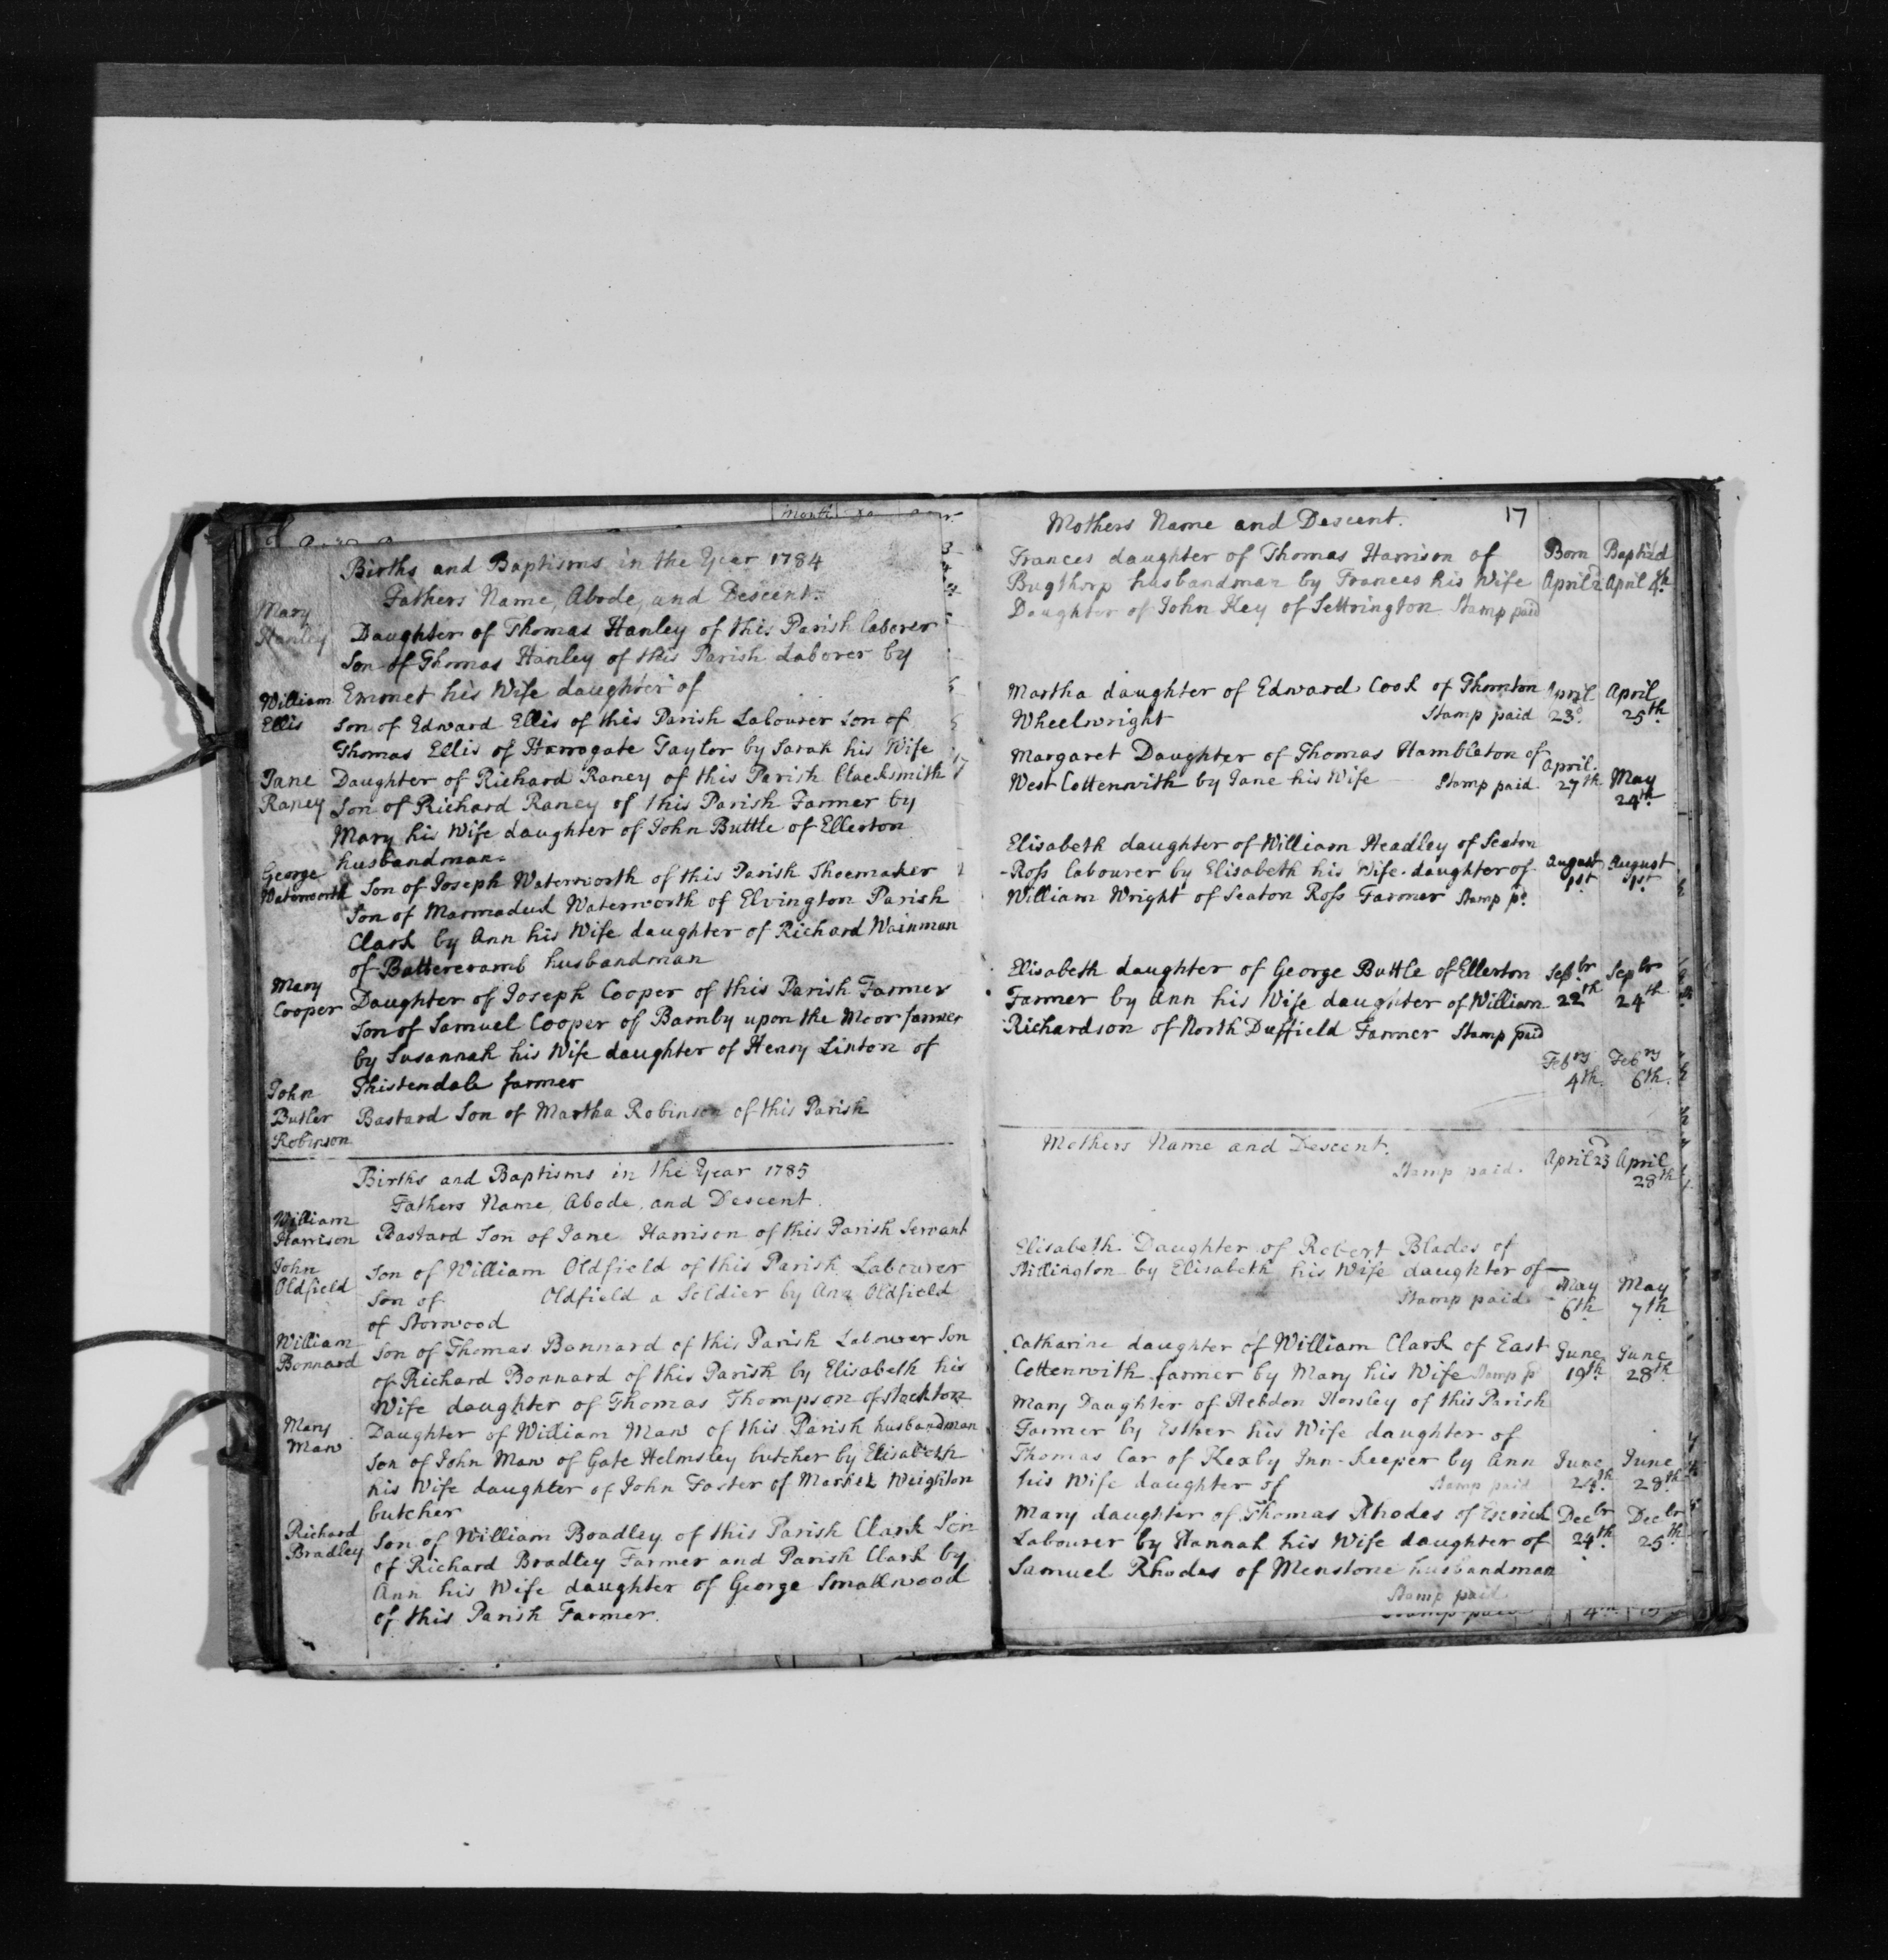 Births and Baptisms in the Year 1784
Fathers Name, Abode, and Descent.
Mary
Hanley
Daughter of Thomas Hanley of this Parish laborer
Son of Thomas Hanley of this Parish Laborer by
Emmet his Wife daughter of
William
Ellis
Son of Edward Ellis of this Parish Labourer Son of
Thomas Ellis of Harrogate Taylor by Sarah his Wife
Jane
Raney
Daughter of Richard Raney of this Parish Blacksmith
Son of Richard Raney of this Parish Farmer by
Mary his Wife daughter of John Buttle of Ellerton
husbandman
George
Waterworth
Son of Joseph Waterworth of this Parish Shoemaker
Son of Marmaduk Waterworth of Elvington Parish
Clark by Ann his Wife daughter of Richard Wainman
of Buttercramb husbandman
Mary
Cooper
Daughter of Joseph Cooper of this Parish Farmer
Son of Samuel Cooper of Barnby upon the Moor farmer
by Susannah his Wife daughter of Henry Linton of
Thistendale farmer
John
Butler
Robinson
Bastard Son of Martha Robinson of this Parish
Births and Baptisms in the Year 1785
Fathers Name, Abode, and Descent.
William
Harrison
Bastard Son of Jane Harrison of this Parish Servant
John
Oldfield
Son of William Oldfield of this Parish Labourer
Son of Oldfield a Soldier by Ann Oldfield
of Storwood
William
Bonnard
Son of Thomas Bonnard of this Parish Labourer Son
of Richard Bonnard of this Parish by Elisabeth his
Wife daughter of Thomas Thompson of Stockton
Mary
Maw
Daughter of William Maw of this Parish husbandman
Son of John Maw of Gate Helmsley butcher by Elisabeth
his Wife daughter of John Foster of Market Weighton
butcher
Richard
Bradley
Son of William Bradley of this Parish Clark Son
of Richard Bradley Farmer and Parish Clark by
Ann his Wife daughter of George Smallwood
of this Parish Farmer.
Mothers Name and Descent. 17
Born Baptizd
Frances daughter of Thomas Harrison of
Bugthorp husbandman by Frances his Wife April 2d April 4th
Daughter of John Key of Settrington Stamp paid
Martha daughter of Edward Cook of Thornton April April
Wheelwright Stamp paid 23d. 25th.
Margaret Daughter of Thomas Hambleton of April
West Cottenwith by Jane his Wife Stamp paid 27th May
24th
Elisabeth daughter of William Headley of Seaton
-Ross labourer by Elisabeth his Wife daughter of August August
William Wright of Seaton Ross Farmer Stamp pd. 1st 1st
Elisabeth daughter of George Buttle of Ellerton Sepbr Sepbr
Farmer by Ann his Wife daughter of William 22th 24th
Richardson of North Duffield Farmer Stamp paid
Febry Febry
4th. 6th.
Mothers Name and Descent.
Stamp paid. April 23d April
28th
Elisabeth Daughter of Robert Blades of
Stillington by Elisabeth his Wife daughter of—
Stamp paid May May
6th 7th
Catharine daughter of William Clark of East June June
Cottenwith farmer by Mary his Wife Stamp pd 19th 28th
Mary Daughter of Hebdon Horsley of this Parish
Farmer by Esther his Wife daughter of
Thomas Car of Kexby Inn-keeper by Ann June June
his Wife daughter of Stamp paid 24th. 28th.
Mary daughter of Thomas Rhodes of Escrick Decbr Decbr
Labourer by Hannah his Wife daughter of 24th. 25th.
Samuel Rhodes of Menstone husbandman
Stamp paid